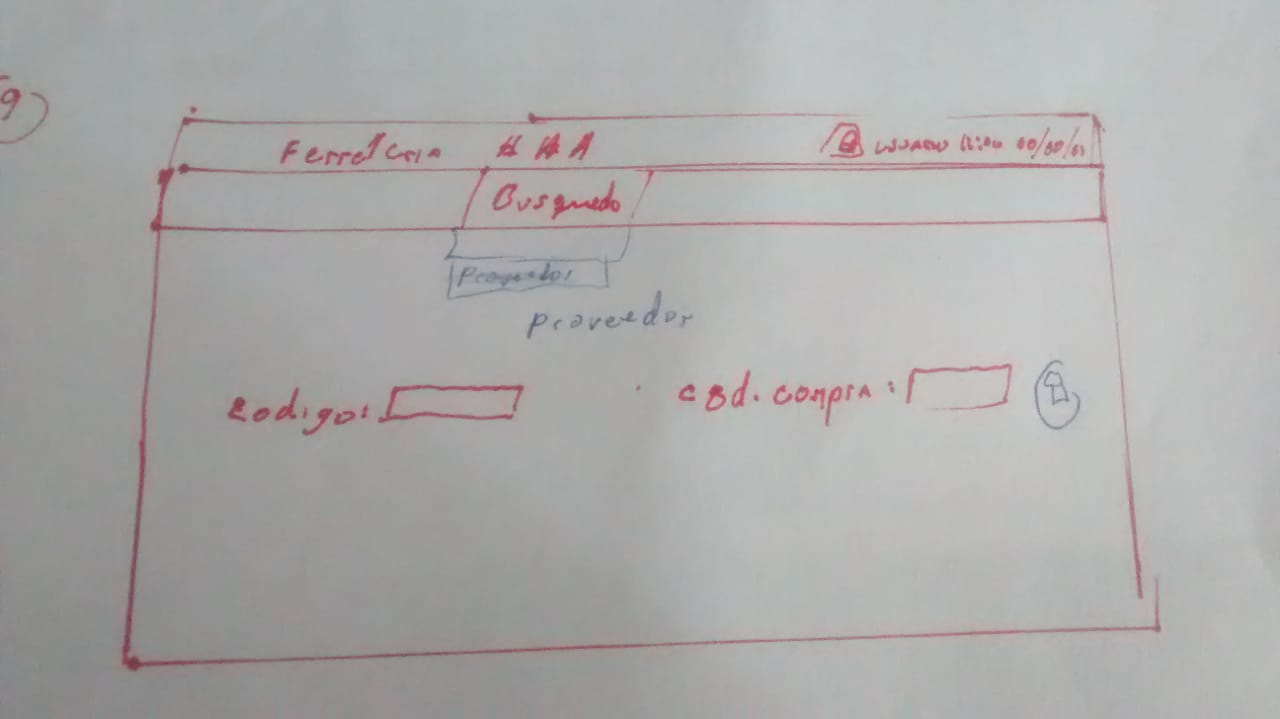 9
Ferreteria AAA usuario 12:00 00/00/01
Busquedo
Proveedor
Proveedor
Codigo: Cod. compra: